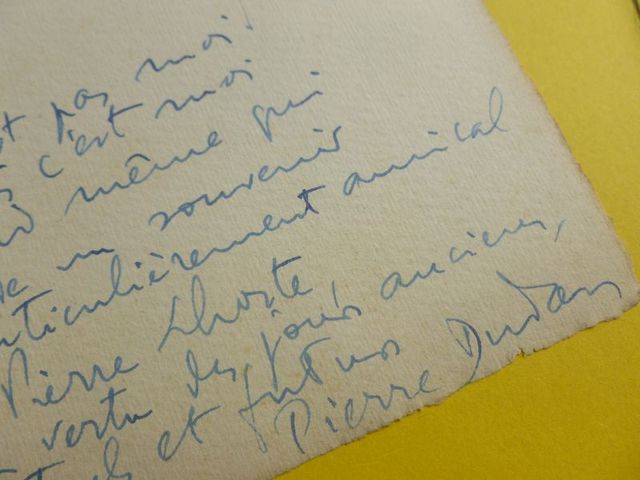 pas moi!
c'est moi
même qui
un souvenir
ticulièrement amical
Pierre Lhoste,
vertu des jours anciens,
et futurs
Pierre Dudan